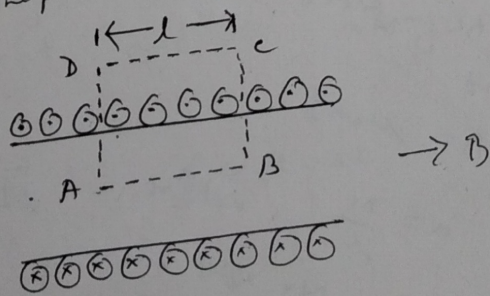 l
D
C
A
B
→ B